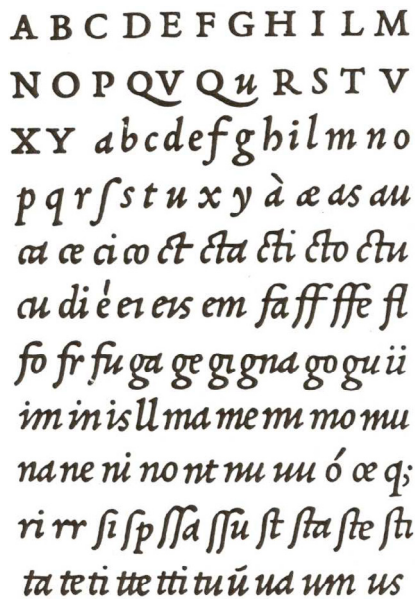 A B C D E F G H I L M
N O P QV Qu R S T V
X Y a b c d e f g h i l m n o
p q r ſ s t u x y à æ as au
ca ce ci co ct cta cti cto ctu
cu di é ei eis em fa ff ffe fl
fo fr fu ga ge gi gna go gu ii
im in is ll ma me mi mo mu
na ne ni no nt nu uu ó œ q;
ri rr ſi ſp ſſa ſſu ſt ſta ſte ſti
ta te ti tte tti tu ũ ua um us